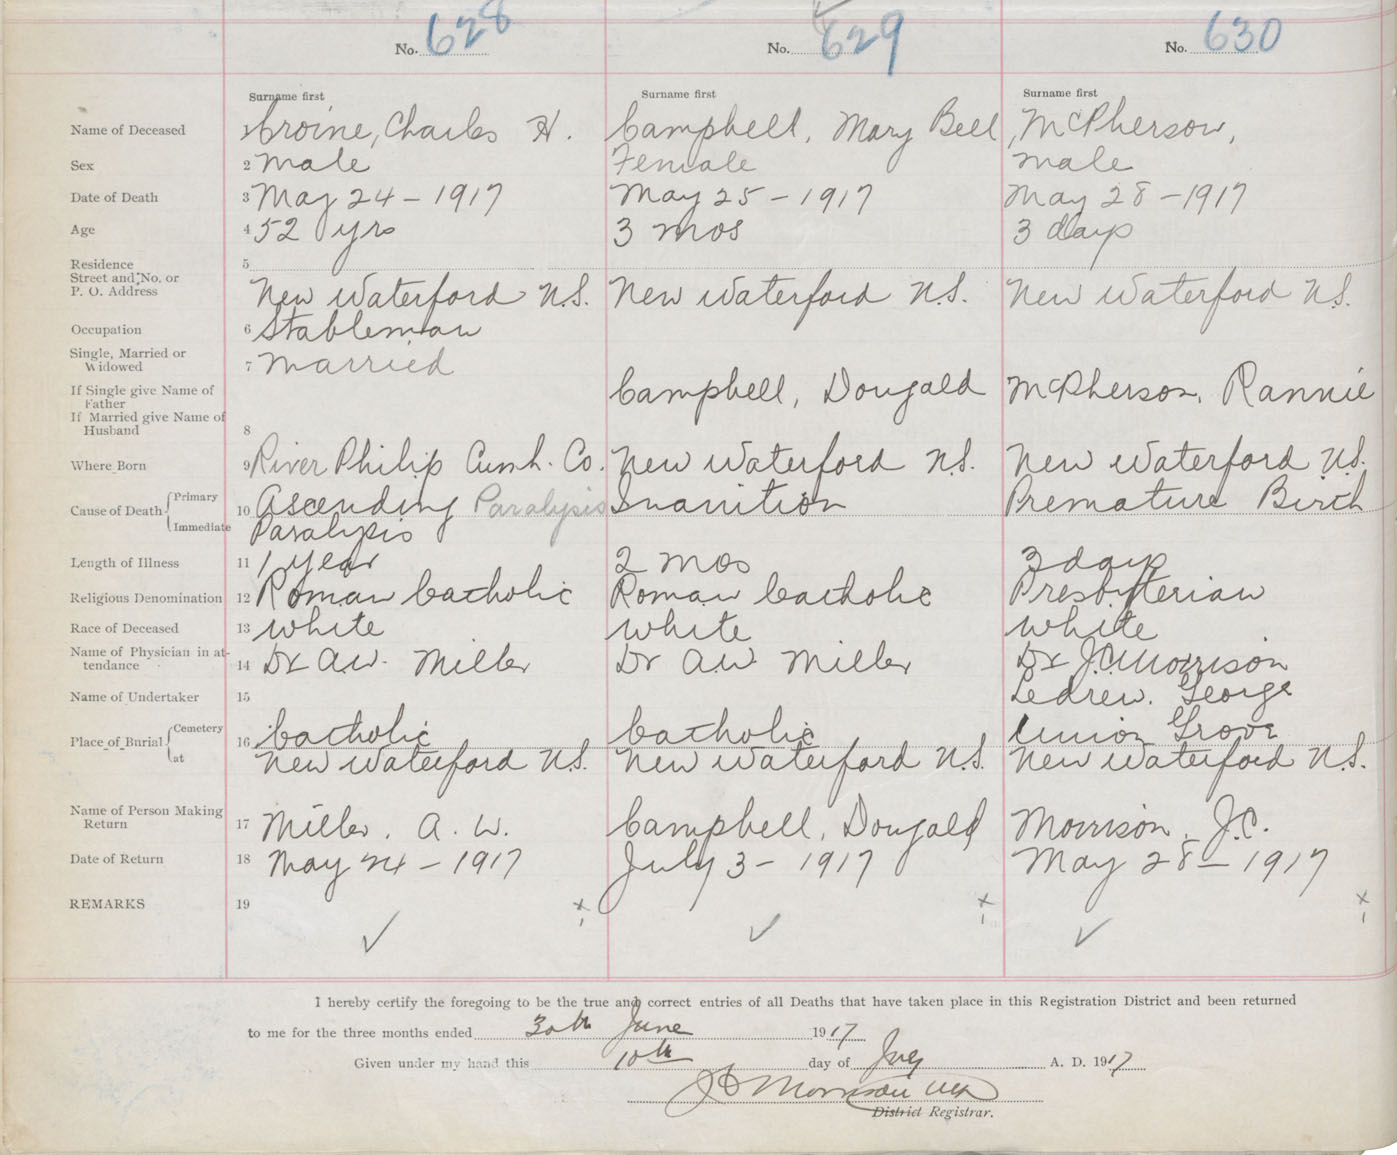 No. 628 No. 629 No. 630
Surname first Surname first Surname first
Name of Deceased 1 Croine, Charles H. Campbell, Mary Bell McPherson,
Sex 2 Male Female Male
Date of Death 3 May 24 - 1917 May 25 - 1917 May 28 - 1917
Age 4 52 yrs 3 mos 3 days
Residence 5
Street and No. or
P. O. Address New Waterford N.S. New Waterford N.S. New Waterford N.S.
Occupation 6 Stableman
Single, Married or
Widowed 7 Married
If Single give Name of
Father Campbell, Dougald McPherson, Rannie
If Married give Name of
Husband 8
Where Born 9 River Philip Cumb. Co. New Waterford N.S. New Waterford N.S.
Cause of Death { Primary
10 Ascending Paralysis Inanition Premature Birth
Immediate Paralysis
Length of Illness 11 1 year 2 mos 3 days
Religious Denomination 12 Roman Catholic Roman Catholic Presbyterian
Race of Deceased 13 White White White
Name of Physician in at-
tendance 14 Dr A.W. Miller Dr A.W. Miller Dr J.C. Morrison
Name of Undertaker 15 Ledrew. George
Place of Burial { Cemetery 16 Catholic Catholic Union Grove
at New Waterford N.S. New Waterford N.S. New Waterford N.S.
Name of Person Making
Return 17 Miller, A. W. Campbell, Dougald Morrison, J.C.
Date of Return 18 May 24 - 1917 July 3 - 1917 May 28 - 1917
REMARKS 19
I hereby certify the foregoing to be the true and correct entries of all Deaths that have taken place in this Registration District and been returned
to me for the three months ended 30th June 1917
Given under my hand this 10th day of July A. D. 1917
Morrison
District Registrar.